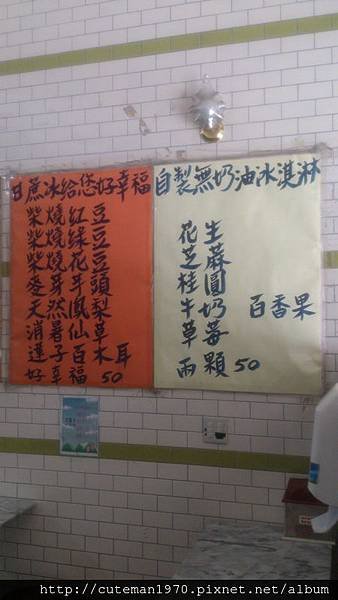 甘蔗冰給您好幸福
柴燒紅豆
柴燒綠豆
柴燒花豆
麥芽芋頭
天然鳳梨
消暑仙草
蓮子百木耳
好幸福 50
自製無奶油冰淇淋
花生
芝蔴
桂圓
牛奶 百香果
草莓
兩顆50
http://cuteman1970.pixnet.net/album